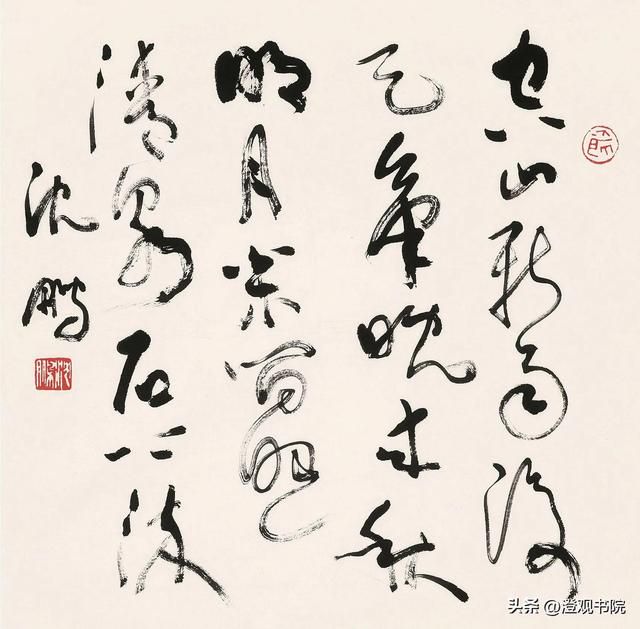 空山新雨後
天氣晚来秋
明月松間照
清泉石上流
沈鵬
沈鵬
头条@澄观书院